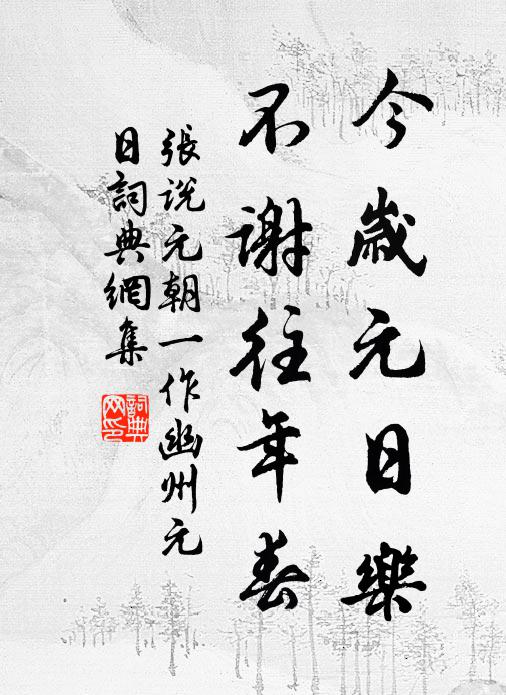 今歲元日樂
不謝往年春
張説元朝一作幽州元
日詞典網集
詞典网印